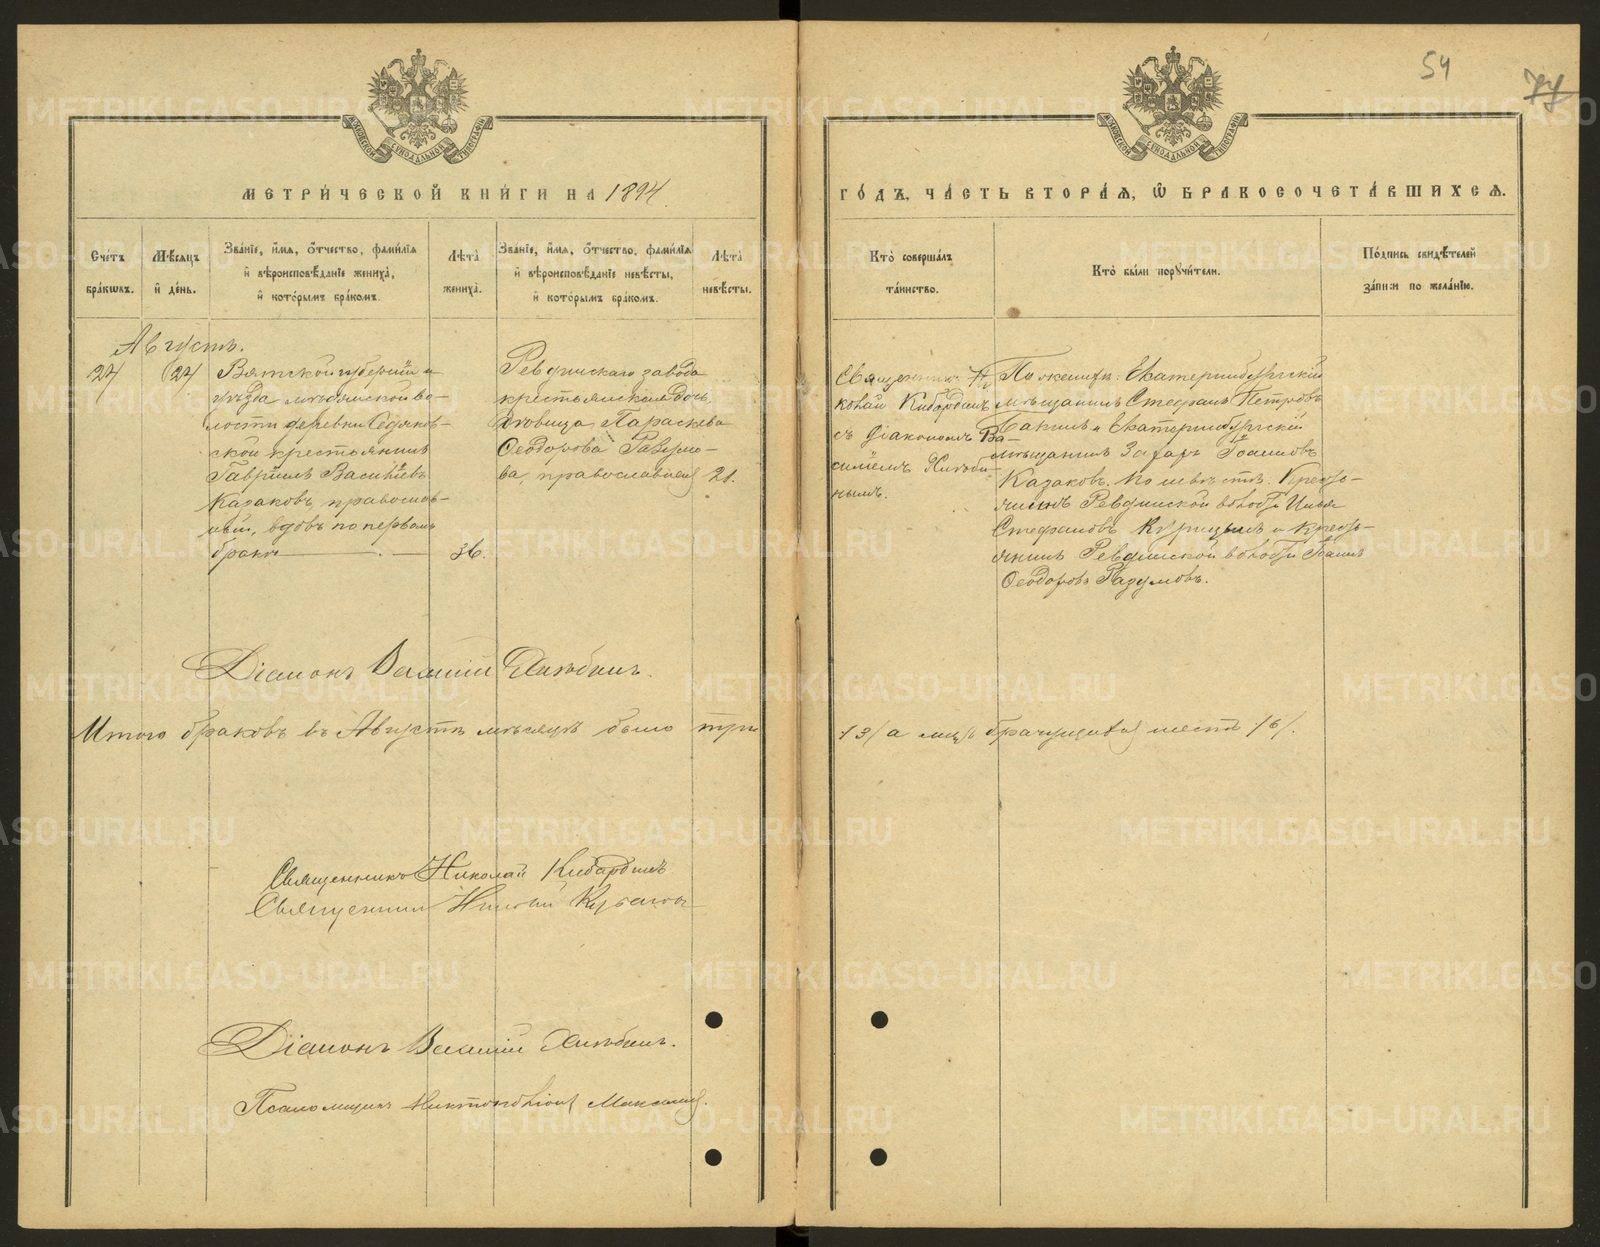 54
77
МОСКОВСКОЙ СѴНОДАЛЬНОЙ ТИПОГРАФІИ
МОСКОВСКОЙ СѴНОДАЛЬНОЙ ТИПОГРАФІИ
МЕТРИ́ЧЕСКОЙ КНИ́ГИ НА 1894
ГО́ДЪ, ЧА́СТЬ ВТОРА́Я, Ѽ БРАКОСОЧЕТА́ВШИХСЯ.
Сче́тъ бра́кωвъ.
Мѣ́сяцъ и҆ де́нь.
Зва́нїе, и҆́мя, о҆́тчество, фами́лїя и҆ вѣроисповѣ́данїе жениха̀, и҆ кото́рымъ бра́комъ.
Лѣ́та жениха̀.
Зва́нїе, и҆́мя, о҆́тчество, фами́лїя и҆ вѣроисповѣ́данїе невѣ́сты, и҆ кото́рымъ бра́комъ.
Лѣ́та невѣ́сты.
Кто̀ соверша́лъ та́инство.
Кто̀ бы́ли порꙋчи́тели.
По́дпись свидѣ́телей за́писи по жела́нїю.
Августъ.
27
27
Вятской губерніи и
уѣзда
волости деревни
ской крестьянинъ
Гавріилъ Васильевъ
Казаковъ, православ-
ный, вдовъ по первомъ
бракѣ
36.
Ревдинскаго завода
крестьянская дочь,
дѣвица Параскева
Ѳеодорова
ва, православная
21.
Священникъ Ни
колай Кибардинъ
съ діакономъ Ва-
силіемъ Хлѣби-
нымъ.
По женихѣ: Екатеринбургскій
мѣщанинъ Стефанъ Петровъ
Бакинъ и Екатеринбургскій
мѣщанинъ Захаръ Іоанновъ
Казаковъ. По невѣстѣ: Кресть-
янинъ Ревдинской волости Илья
Стефановъ Курицынъ и Кресть-
янинъ Ревдинской волости Іоаннъ
Ѳеодоровъ Разумовъ.
Діаконъ Василій Хлѣбинъ.
Итого браковъ въ Августѣ мѣсяцѣ было три
/3/ а лицъ брачущихся шесть /6/.
Священникъ Николай Кибардинъ
Священникъ
Діаконъ Василій Хлѣбинъ.
Псаломщикъ
METRIKI.GASO-URAL.RU